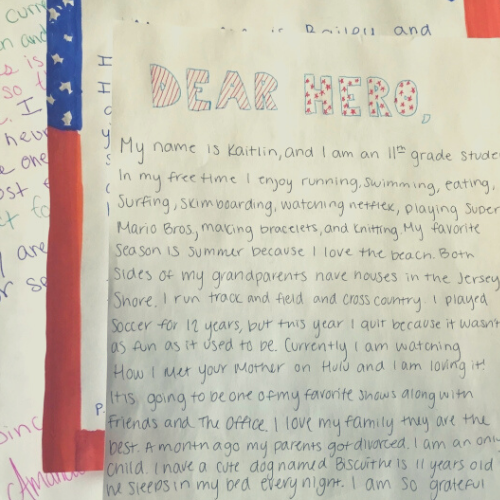 DEAR HERO,
My name is Kaitlin, and I am an 11th grade stude
In my free time I enjoy running, swimming, eating,
surfing, skimboarding, watching netflex, playing Super
Mario Bros., making bracelets, and knitting. My favorite
season is summer because I love the beach. Both
sides of my grandparents have houses in the Jersey
Shore. I run track and field and cross country. I played
Soccer for 12 years, but this year I quit because it wasn't
as fun as it used to be. Currently I am watching
How I Met your Mother on Hulu and I am loving it!
It is going to be one of my favorite shows along with
Friends and The Office. I love my family they are the
best. A month ago my parents got divorced. I am an only
child. I have a cute dog named Biscuit he is 11 years old
he sleeps in my bed every night. I am so grateful
and
curr
n and
s is
so t
I
heve
e one
ost
t fo
are
r se
Sinc
Amanda